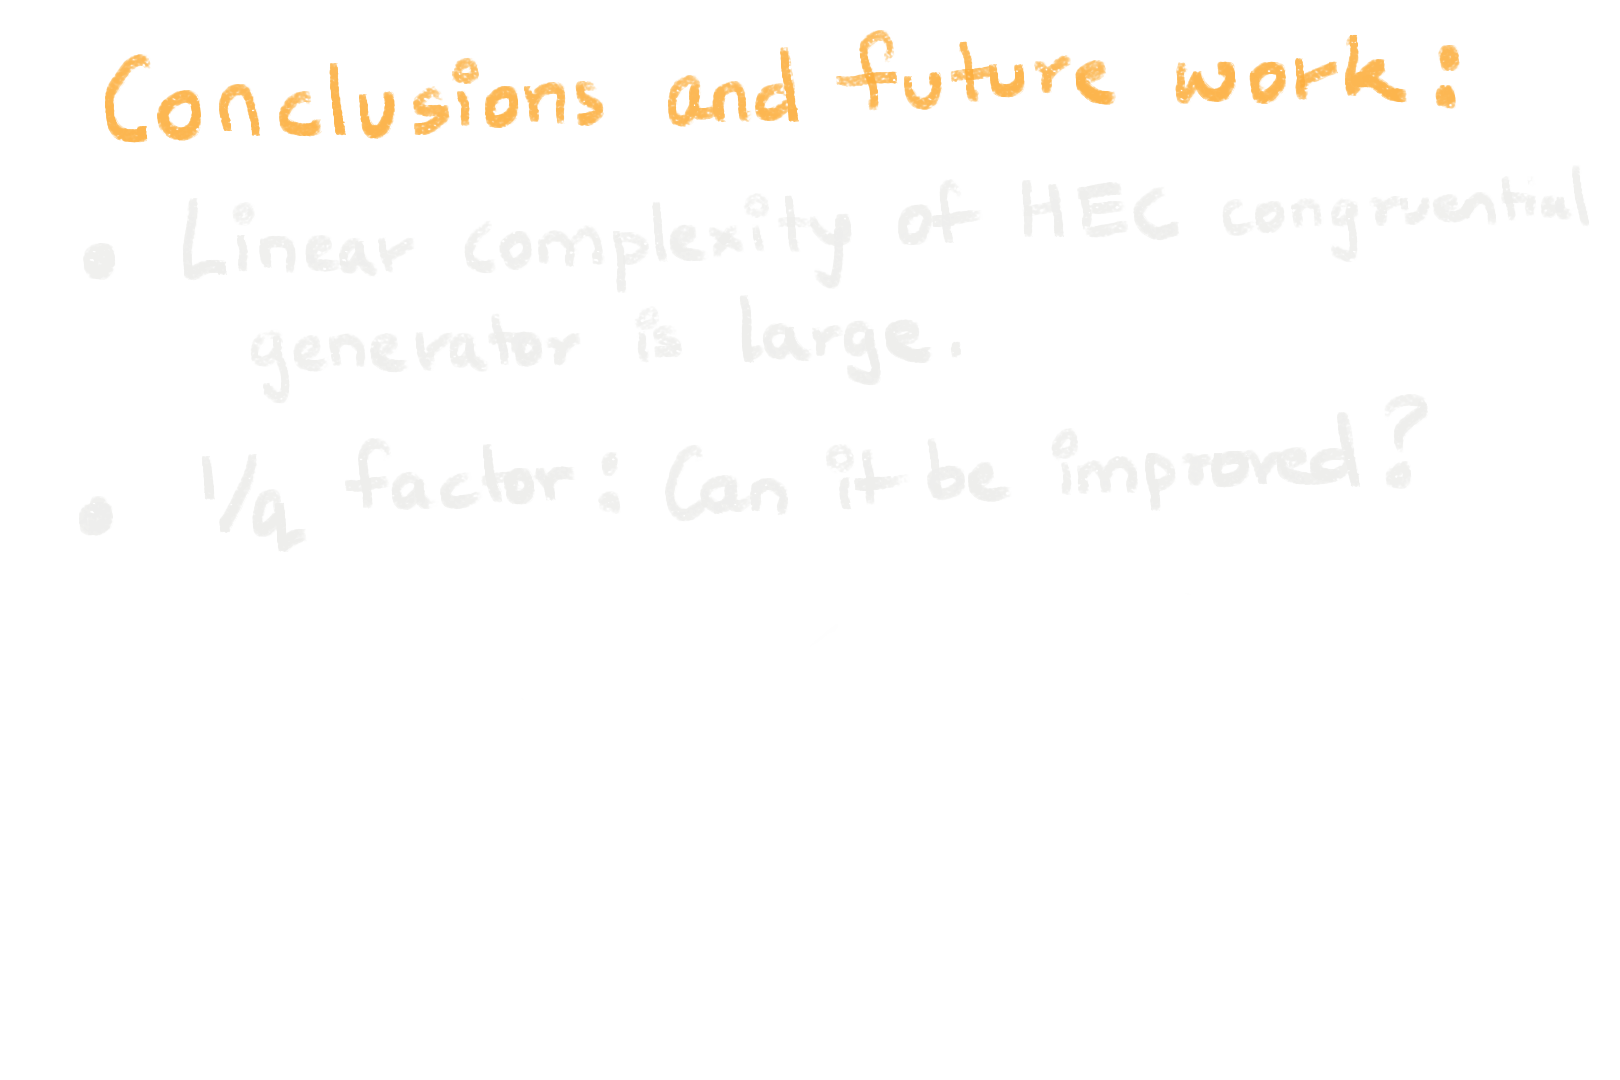 Conclusions and future work:
• Linear complexity of HEC congruential
generator is large.
• 1/q factor: Can it be improved?